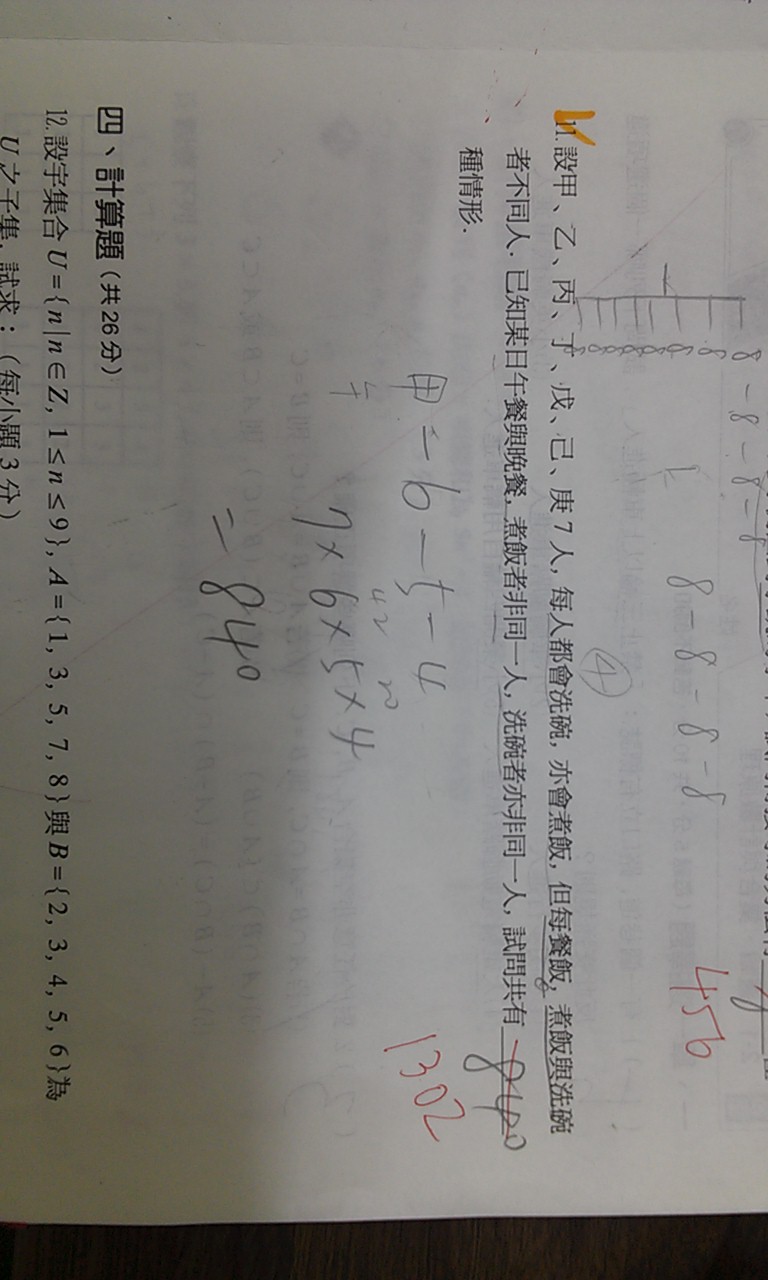 8-8-8-8
8-8-8-8
456
11. 設甲、乙、丙、丁、戊、己、庚 7 人, 每人都會洗碗, 亦會煮飯, 但每餐飯, 煮飯與洗碗
④
者不同人. 已知某日午餐與晚餐, 煮飯者非同一人, 洗碗者亦非同一人, 試問共有 840
種情形.
1302
甲 = 6-5-4
7×6×5×4
= 840
四、計算題 (共 26 分)
12. 設宇集合 U = {n | n ∈ Z, 1 ≤ n ≤ 9}, A = {1, 3, 5, 7, 8} 與 B = {2, 3, 4, 5, 6} 為
U 之子集, 試求：(每小題 3 分)